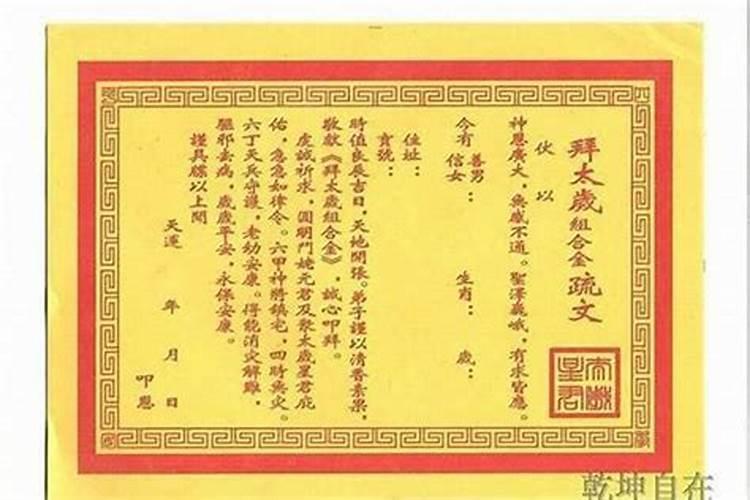 拜太歲組合金疏文
伏以
神恩廣大，無感不通。聖澤巍峨，有求皆應。
今有 善男 信女 ： 生肖： 歲：
住址：
寶號：
時值良辰吉日，天地開張。弟子謹以清香素果，
敬獻《拜太歲組合金》，誠心叩拜。
虔誠祈求，圓明門姥元君及眾太歲星君庇
佑，急急如律令。六甲神將鎮宅，四時無災。
六丁天兵守護，老幼安康。得能消災解難，
驅邪去病，歲歲平安，永保安康。
謹具牒以上聞
天運 年 月 日
叩恩
太歲星君
乾坤自在